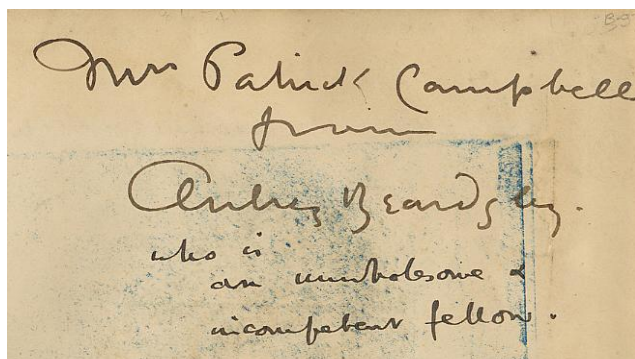 Mrs Patrick Campbell
from
Aubrey Beardsley.
who is
an unwholesome &
incompetent fellow.